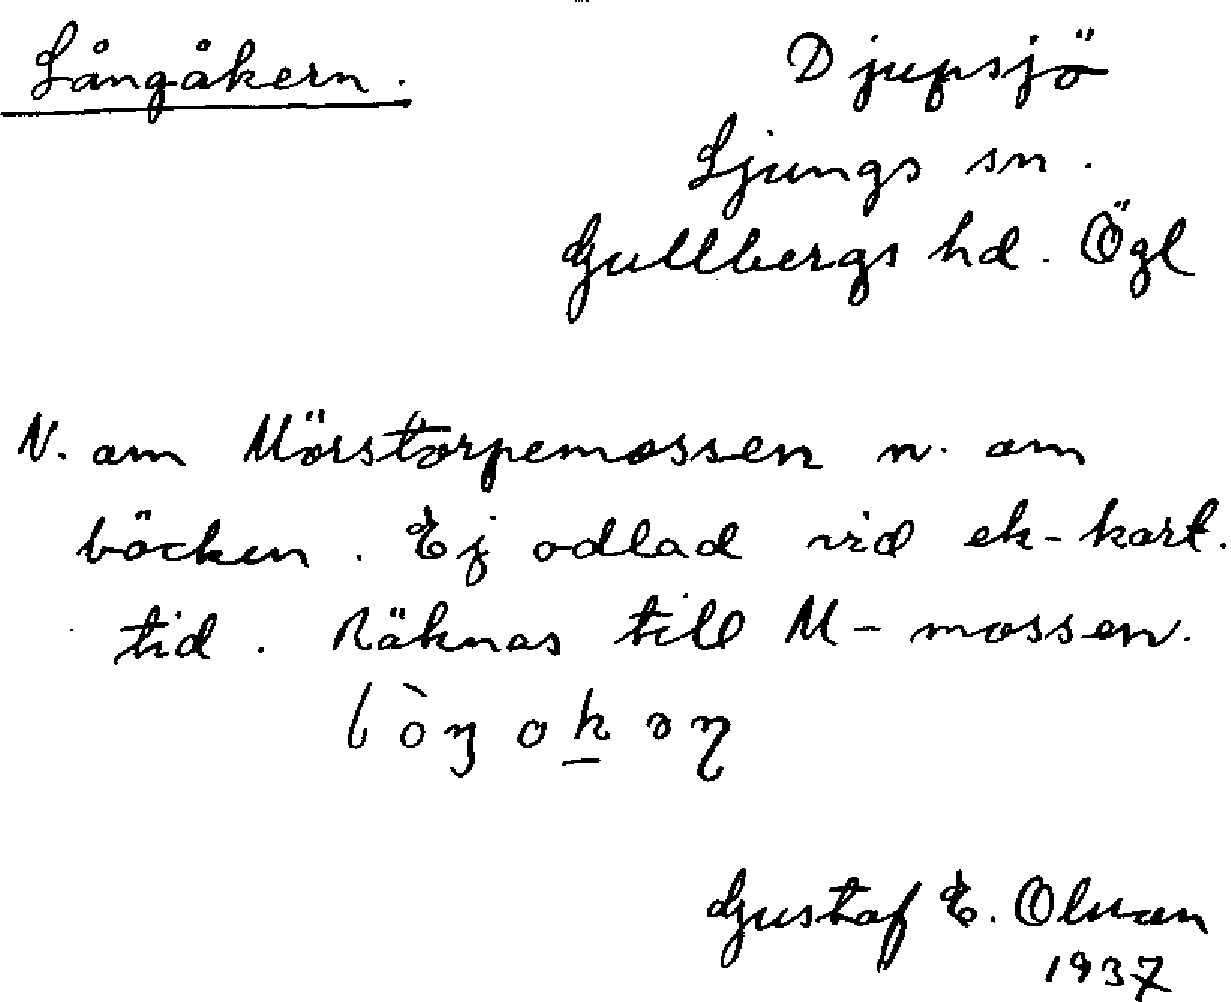 Långåkern.
Djupsjö
Ljungs sn.
Gullbergs hd. Ögl
N. om Mörstorpemossen n. om
böcken. Ej odlad vid ek-kart.
tid. Räknas till M-mossen.
Gustaf E. Olman
1937